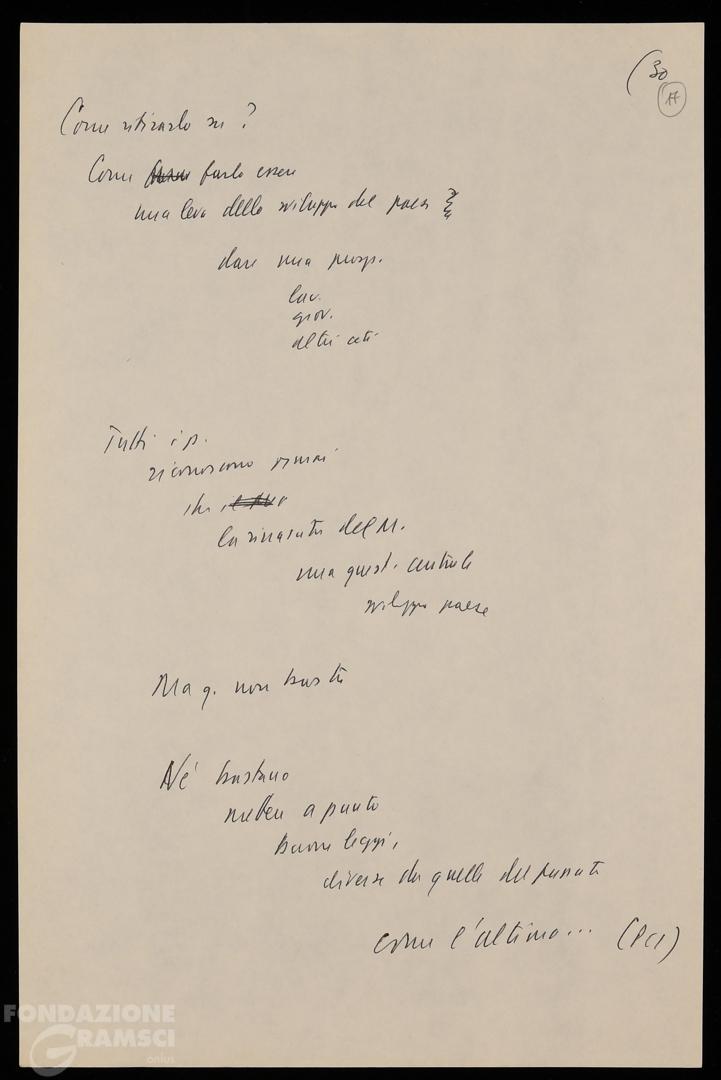 (30
17
Come ritirarlo su ?
Come farlo essere
una leva dello sviluppo del paese
dare una prosp.
lav.
giov.
altri ceti
Tutti i p.
riconoscono ormai
che
la rinascita del M.
una quest. centrale
sviluppo paese
Ma q. non basta
Né bastano
mettere a punto
buone leggi,
diverse da quelle del passato
come l'ultima... (PCI)
FONDAZIONE
GRAMSCI
onlus